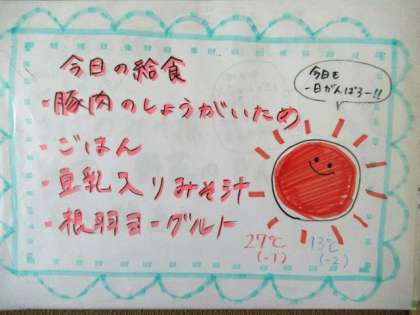 今日の給食
・豚肉のしょうがいため
・ごはん
・豆乳入りみそ汁
・根羽ヨーグルト
今日も
一日がんばろー!!
27℃
(-1)
13℃
(-2)